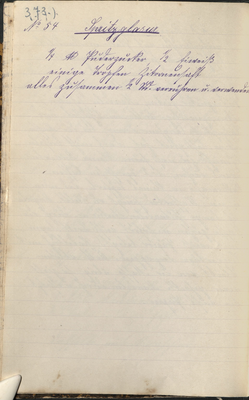 373.)
№ 84 Spritzglasur
¼ ℔ Puderzucker ½ Eiweiß
einige Tropfen Zitronensaft
alles zusammen ½ St. verrühren u. verwenden